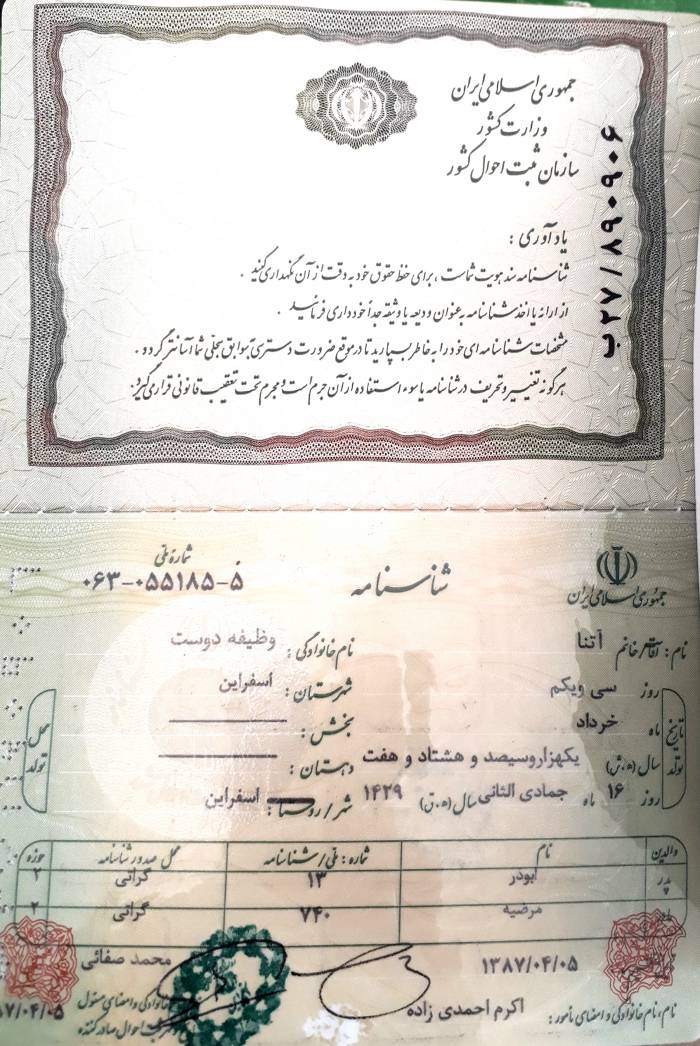 جمهوری اسلامی ایران
وزارت کشور
سازمان ثبت احوال کشور
ب ۲۷/۸۹۰۹۰۶
یادآوری :
شناسنامه سند هویت شماست ، برای حفظ حقوق خود به دقت از آن نگهداری کنید .
از ارائه یا اخذ شناسنامه به عنوان ودیعه یا وثیقه جداً خودداری فرمائید .
مشخصات شناسنامه ای خود را به خاطر بسپارید تا در موقع ضرورت دسترسی به سوابق سجلی شما آسانتر گردد .
هرگونه تغییر و تحریف در شناسنامه یا سوء استفاده از آن جرم است و مجرم تحت تعقیب قانونی قرار می گیرد .
جمهوری اسلامی ایران
شناسنامه
شماره ملی
۰۶۳-۰۵۵۱۸۵-۵
نام : آقا/خانم آتنا نام خانوادگی : وظیفه دوست
تاریخ تولد
روز سی ویکم
ماه خرداد
سال (ه.ش) یکهزاروسیصد و هشتاد و هفت
روز ۱۶ ماه جمادی الثانی سال (ه.ق) ۱۴۲۹
محل تولد
شهرستان : اسفراین
بخش :
دهستان :
شهر / روستا : اسفراین
والدین نام شماره : ملی/شناسنامه محل صدور شناسنامه حوزه
پدر ابوذر ۱۳ گراتی ۲
مادر مرضیه ۷۴۰ گراتی ۲
۱۳۸۷/۰۴/۰۵ محمد صفائی
نام، نام خانوادگی و امضای مأمور : اکرم احمدی زاده
خانوادگی و امضای مسئول
احوال صادرکننده
۸۷/۰۴/۰۵